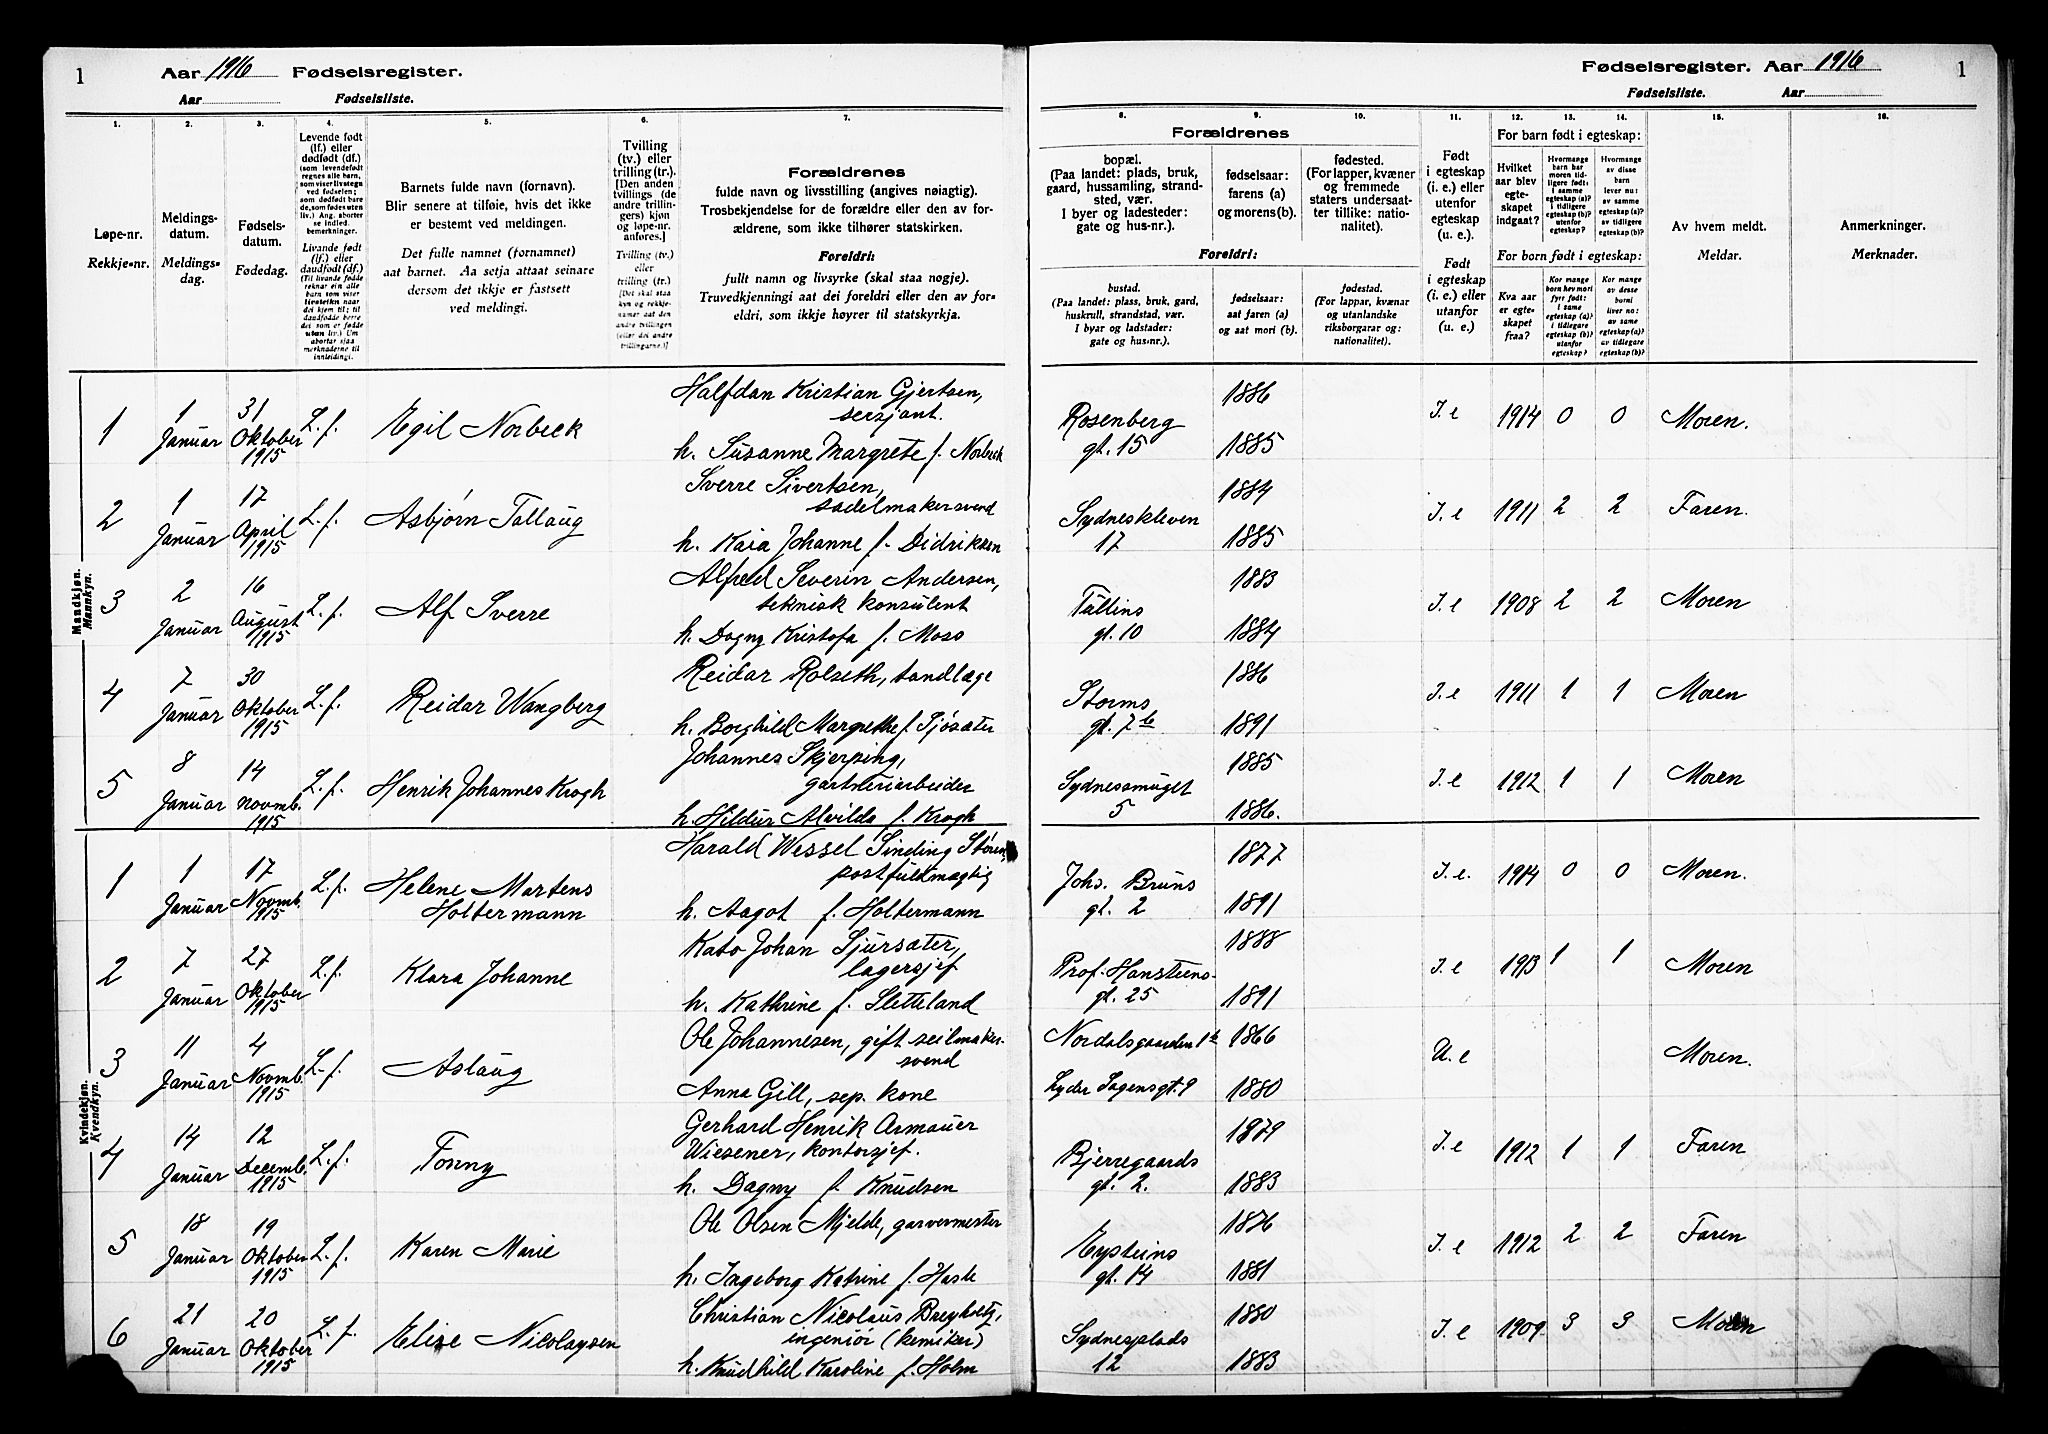 1
Aar 1916 Fødselsregister.
Aar Fødselsliste.
Fødselsregister. Aar 1916
1
Fødselsliste. Aar
1.
2.
3.
4.
5.
6.
7.
8.
9.
10.
11.
12.
13.
14.
15.
16.
Løpe-nr.
Rekkje-nr.
Meldings-
datum.
Meldings-
dag.
Fødsels-
datum.
Fødedag.
Levende født
(lf.) eller
dødfødt (df.)
Livande født
(lf.) eller
daudfødt (df.)
Barnets fulde navn (fornavn).
Blir senere at tilføie, hvis det ikke
er bestemt ved meldingen.
Det fulle namnet (fornamnet)
aat barnet. Aa setja attaat seinare
dersom det ikkje er fastsett
ved meldingi.
Tvilling
(tv.) eller
trilling (tr.).
[Den anden
tvillings (de
andre trillin-
gers) kjøn
og løpe-nr.
anføres.]
Tvilling (tv.)
eller
trilling (tr.)
Forældrenes
fulde navn og livsstilling (angives nøiagtig).
Trosbekjendelse for de forældre eller den av for-
ældrene, som ikke tilhører statskirken.
Foreldri:
fullt namn og livsyrke (skal staa nøgje).
Truvedkjenningi aat dei foreldri eller den av for-
eldri, som ikkje høyrer til statskyrkja.
Forældrenes
bopæl.
(Paa landet: plads, bruk,
gaard, hussamling, strand-
sted, vær.
I byer og ladesteder:
gate og hus-nr.).
fødselsaar:
farens (a)
og morens (b).
fødested.
(For lapper, kvæner
og fremmede
staters undersaat-
ter tillike: natio-
nalitet).
Foreldri:
bustad.
(Paa landet: plass, bruk, gard,
huskrull, strandstad, vær.
I byar og ladstader:
gate og hus-nr.).
fødselsaar:
aat faren (a)
og aat mori (b).
fødestad.
(For lappar, kvænar
og utanlandske
riksborgarar og:
nationalitet).
Født
i egteskap
(i. e.) eller
utenfor
egteskap
(u. e.).
Født
i egteskap
(i. e.) eller
utanfor
(u. e.)
For barn født i egteskap:
Hvilket
aar blev
egte-
skapet
indgaat?
For barn født i egteskap:
Kva aar
er egte-
skapet
fraa?
Av hvem meldt.
Meldar.
Anmerkninger.
Merknader.
Mandkjøn.
Mannkyn.
1
1 Januar
31 Oktober 1915
L. f.
Egil Norbeck
Halfdan Kristian Gjertsen,
sersjant.
h. Susanne Margrete f. Norbeck
Rosenberg
gt. 15
1886
1885
I. e
1914
0
0
Moren.
2
1 Januar
17 April 1915
L. f.
Asbjørn Tallaug
Sverre Sivertsen,
sadelmakersvend
h. Kaia Johanne f. Didriksen
Sydneskleven
17
1884
1885
I. e
1911
2
2
Faren.
3
2 Januar
16 August 1915
L. f.
Alf Sverre
Alfred Severin Andersen,
teknisk konsulent
h. Dagny Kristofa f. Moss
Tullins
gt. 10
1883
1884
I. e
1908
2
2
Moren
4
7 Januar
30 Oktober 1915
L. f.
Reidar Wangberg
Reidar Rolseth, tandlæge
h. Borghild Margrethe f. Sjøsæter
Storms
gt. 7 b
1886
1891
I. e
1911
1
1
Moren
5
8 Januar
14 Novmb. 1915
L. f.
Henrik Johannes Krogh
Johannes Skjerping,
gartneriarbeider
h. Hildur Alvilda f. Krogh
Sydnessmuget
5
1885
1886.
I. e
1912
1
1
Moren
Kvindekjøn.
Kvendkyn.
1
1 Januar
17 Novmb. 1915
L. f.
Helene Martens
Holtermann
Harald Wessel Sinding Støren,
postfuldmægtig
h. Aagot f. Holtermann
Johs. Bruns
gt. 2
1877
1891
I. e.
1914
0
0
Moren.
2
7 Januar
27 Oktober 1915
L. f.
Klara Johanne
Kato Johan Sjursæter,
lagersjef
h. Kathrine f. Sletteland
Prof. Hansteens-
gt. 25
1888
1891
I. e
1913
1
1
Moren
3
11 Januar
4 Novmb. 1915
L. f.
Aslaug
Ole Johannesen, gift seilmaker-
svend
Anna Gill, sep. kone
Nordalsgaarden 1 b
Lyder Sagensgt. 9
1866
1880
U. e
Moren.
4
14 Januar
12 Decemb. 1915
L. f.
Tonny
Gerhard Henrik Armauer
Wiesener, kontorsjef.
h. Dagny f. Knudsen
Bjerregaards
gt. 2.
1879
1883
I. e
1912
1
1
Faren
5
18 Januar
19 Oktober 1915
L. f.
Karen Marie
Ole Olsen Mjelde, garvermester
h. Ingeborg Katrine f. Hasle
Eysteins
gt. 14
1876
1881
I. e
1912
2
2
Faren
6
21 Januar
20 Oktober 1915
L. f.
Elise Nicolaysen
Christian Nicolaus Bergholtz,
ingeniør (kemiker)
h. Knudhild Karoline f. Holm
Sydnesplads
12
1880
1883
I. e
1909.
3
3
Moren